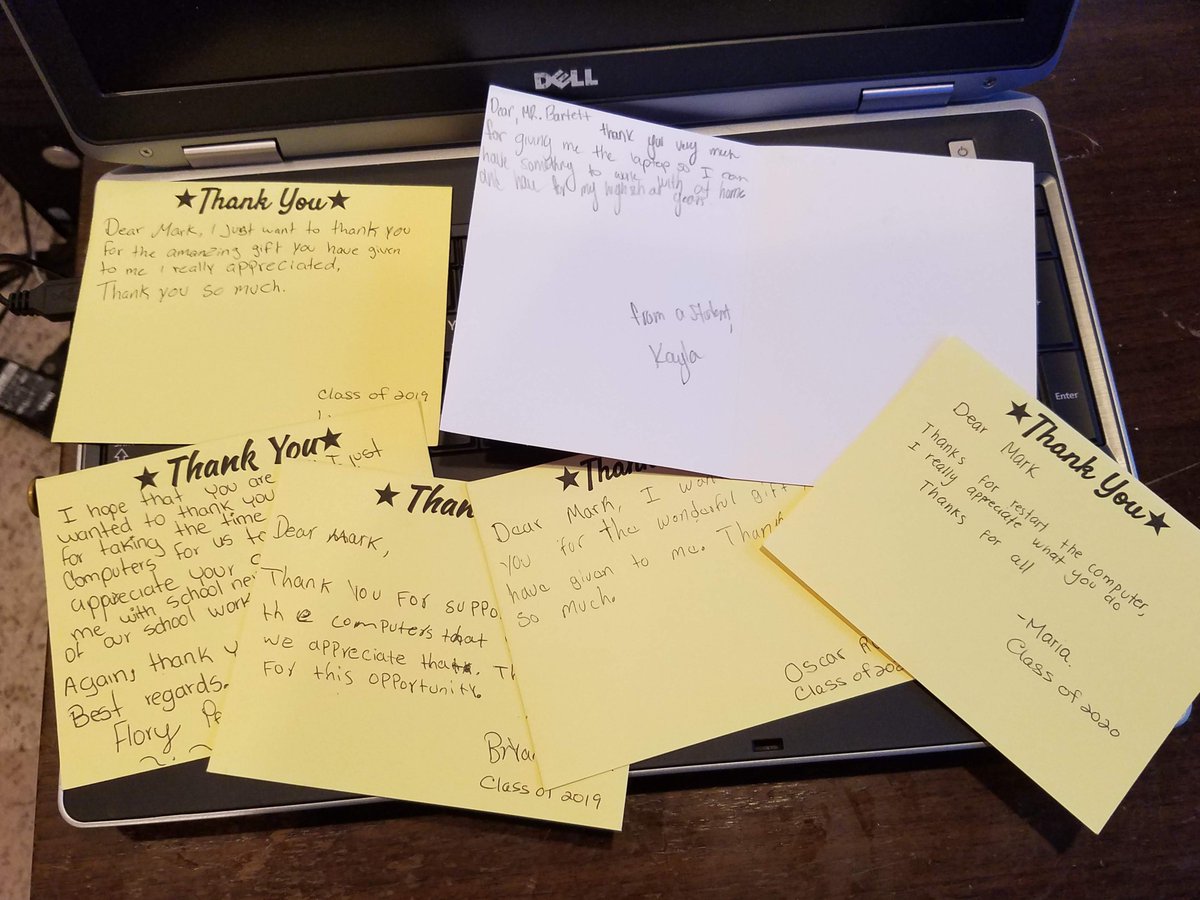 DELL
Dear, MR. Bartett
thank you very much
for giving me the laptop so I can
have something to work with at home
and have for my highschool years
from a student,
Kayla
★Thank You★
Dear Mark, I just want to thank you
for the amanzing gift you have given
to me I really appreciated,
Thank you so much.
Class of 2019
★Thank You★
I just
I hope that you are
wanted to thank you
for taking the time
computers for us to
appreciate your
me with school
of our school work
Again, thank y
Best regards.
Flory Pe
★Than
Dear Mark,
Thank you for suppo
the computers that
we appreciate that. Th
For this opportunity.
Brya
Class of 2019
★Than
Dear Mark, I wan
you for the wonderful gift
have given to me. Thank
so much.
Oscar
Class of 20
★Thank You★
Dear Mark
Thanks for restart the computer,
I really appreciate what you do
Thanks for all
-Maria.
Class of 2020
Enter